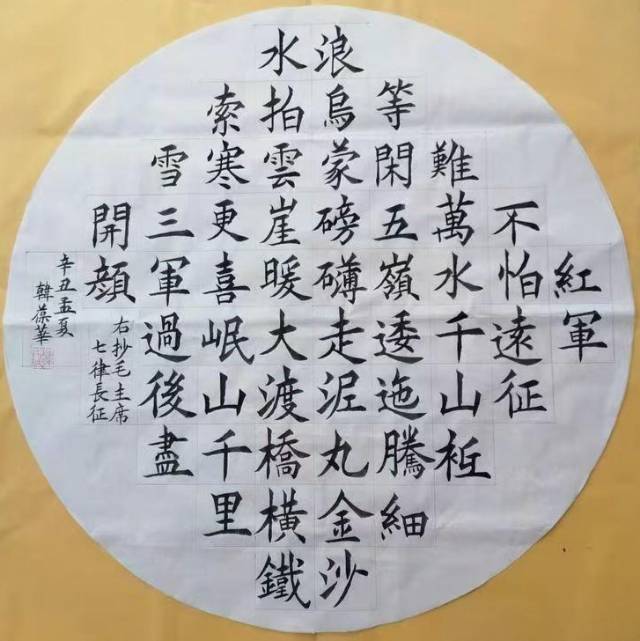 紅軍
不怕遠征
難萬水千山祇
等閑五嶺逶迤騰細
浪烏蒙磅礴走泥丸金沙
水拍雲崖暖大渡橋橫鐵
索寒更喜岷山千里
雪三軍過後盡
開顔
右抄毛主席
七律長征
辛丑孟夏
韓葆華